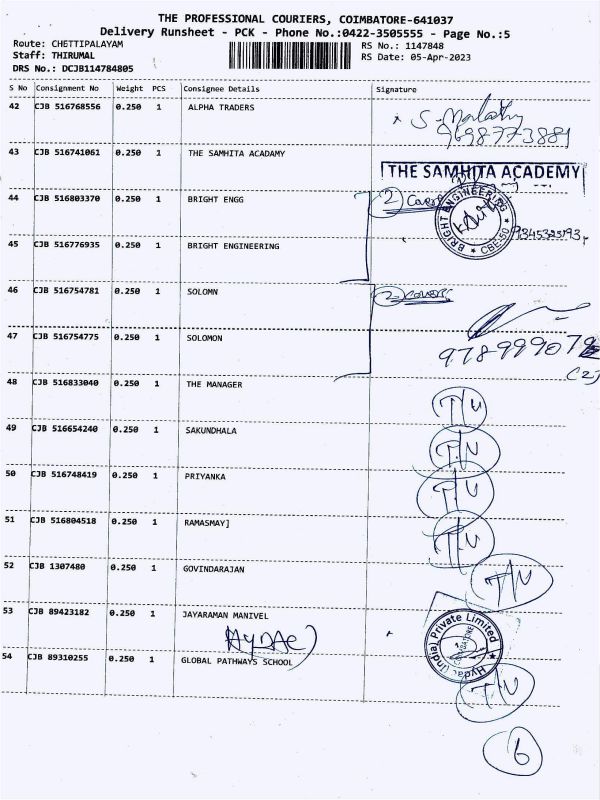 THE PROFESSIONAL COURIERS, COIMBATORE-641037
Delivery Runsheet - PCK - Phone No.:0422-3505555 - Page No.:5
Route: CHETTIPALAYAM
RS No.: 1147848
Staff: THIRUMAL
RS Date: 05-Apr-2023
DRS No.: DCJB114784805
S No Consignment No Weight PCS Consignee Details Signature
42 CJB 516768556 0.250 1 ALPHA TRADERS
S-Malathy
9698773881
43 CJB 516741061 0.250 1 THE SAMHITA ACADAMY
THE SAMHITA ACADEMY
44 CJB 516803370 0.250 1 BRIGHT ENGG
2
BRIGHT ENGINEERING
CBE-50
45 CJB 516776935 0.250 1 BRIGHT ENGINEERING
46 CJB 516754781 0.250 1 SOLOMN
2 covers
47 CJB 516754775 0.250 1 SOLOMON
(2)
48 CJB 516833040 0.250 1 THE MANAGER
T/U
49 CJB 516654240 0.250 1 SAKUNDHALA
T/U
50 CJB 516748419 0.250 1 PRIYANKA
T/U
51 CJB 516804518 0.250 1 RAMASMAY]
T/U
52 CJB 1307480 0.250 1 GOVINDARAJAN
T/U
53 CJB 89423182 0.250 1 JAYARAMAN MANIVEL
HYDAC
Hydac (India) Private Limited
COIMBATORE
54 CJB 89310255 0.250 1 GLOBAL PATHWAYS SCHOOL
T/U
6